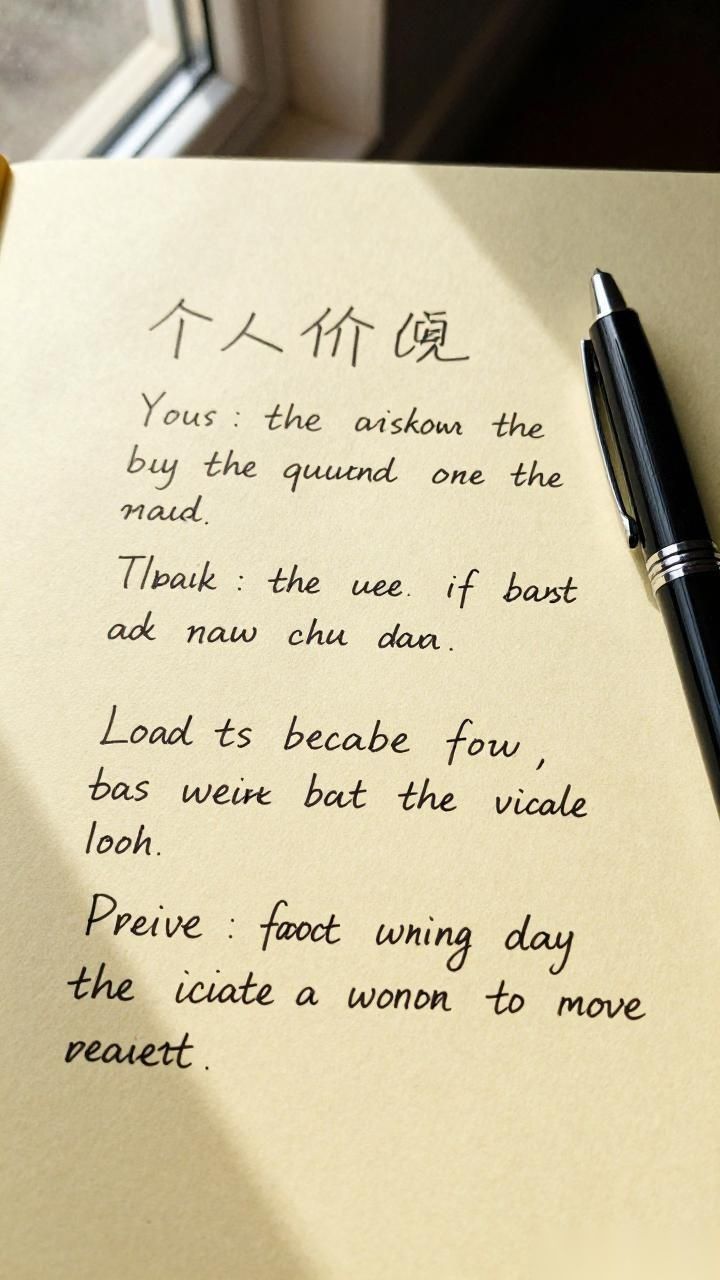 个人价
Yous : the aiskown the
buy the quuund one the
naud.
Tlbaik : the uee. if banst
ade naw chu daa.
Load ts becabe fow ,
bas weink bat the vicale
looh.
Preive : faoct wning day
the iciate a wonon to move
peaiett.